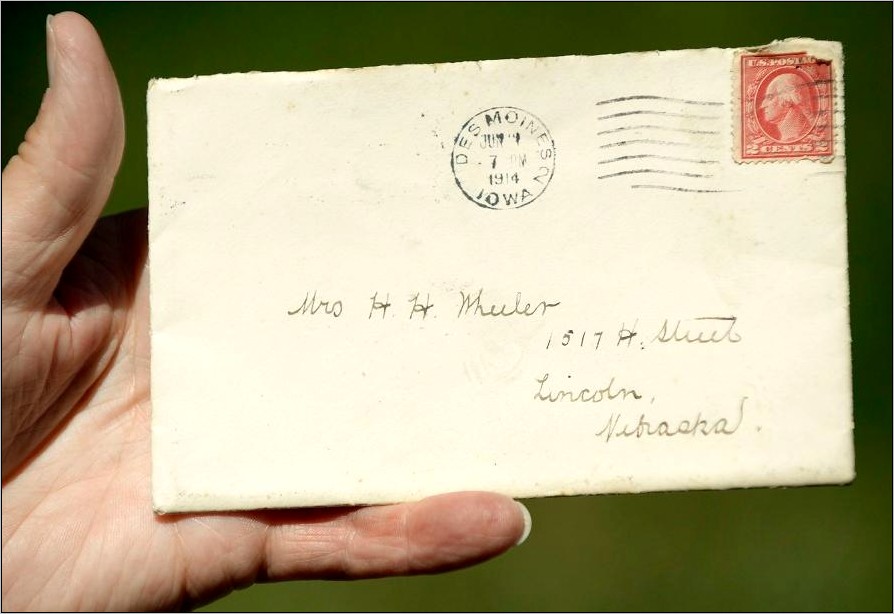 U.S. POSTAGE
2 CENTS 2
DES MOINES 2
JUN
7 PM
1914
IOWA
Mrs H. H. Wheeler
1517 H. Street
Lincoln,
Nebraska.